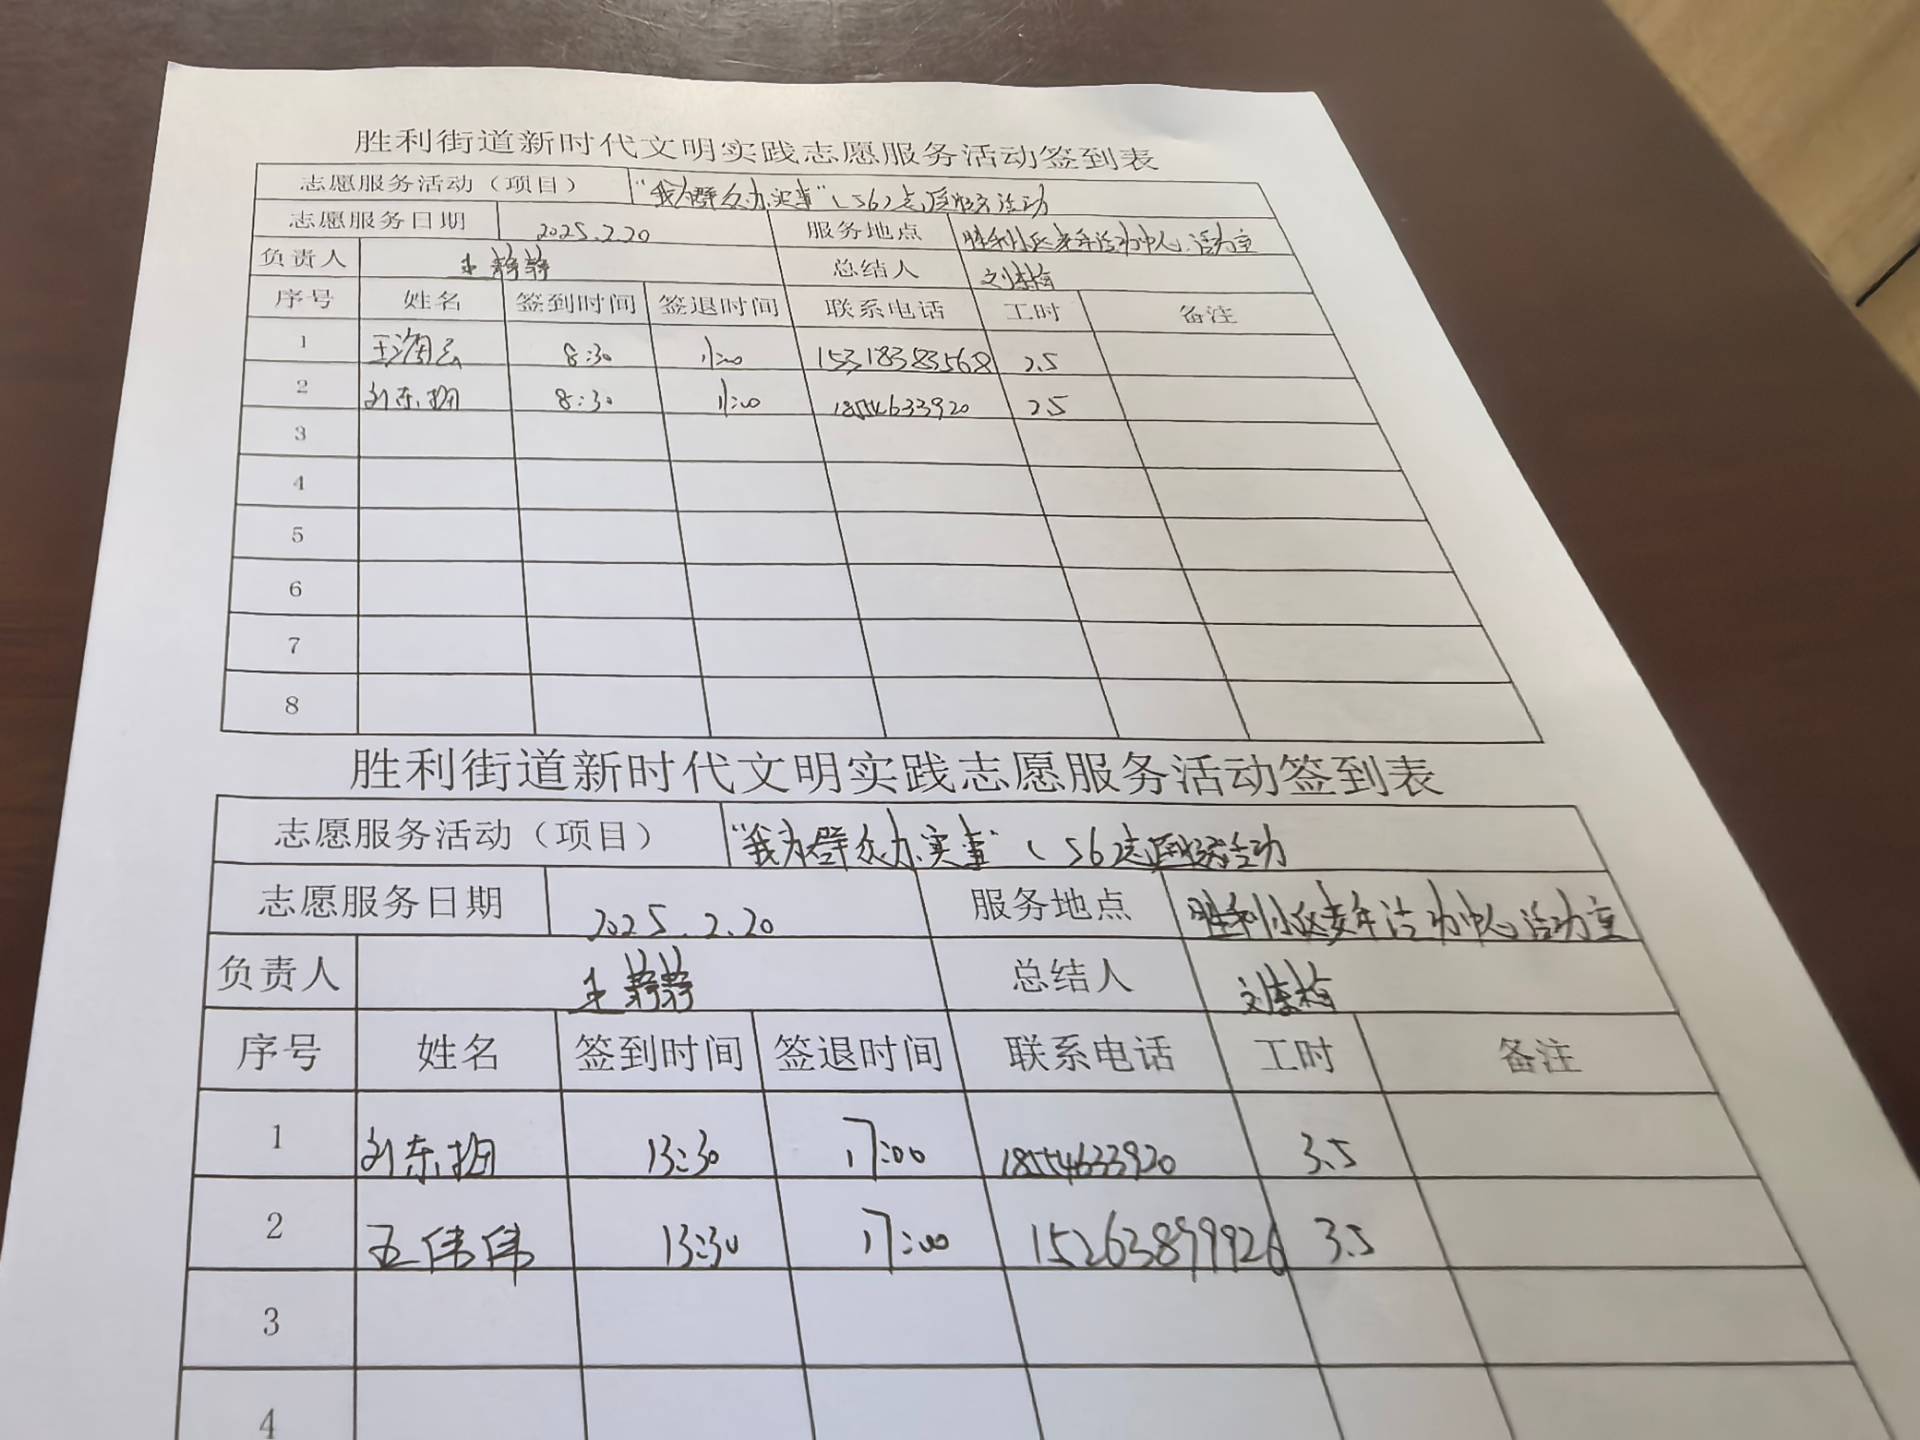 胜利街道新时代文明实践志愿服务活动签到表
志愿服务活动（项目） "我为群众办实事"（56）志愿服务活动
志愿服务日期 2025.2.20 服务地点 胜利小区老年活动中心活动室
负责人 王静静 总结人
序号 姓名 签到时间 签退时间 联系电话 工时 备注
1 8:30 11:00 15318383568 2.5
2 刘东 8:30 11:00 18554633920 2.5
3
4
5
6
7
8
胜利街道新时代文明实践志愿服务活动签到表
志愿服务活动（项目） "我为群众办实事"（56）志愿服务活动
志愿服务日期 2025.2.20 服务地点 胜利小区老年活动中心活动室
负责人 王静静 总结人
序号 姓名 签到时间 签退时间 联系电话 工时 备注
1 刘东 13:30 17:00 18554633920 3.5
2 王伟伟 13:30 17:00 15263899926 3.5
3
4